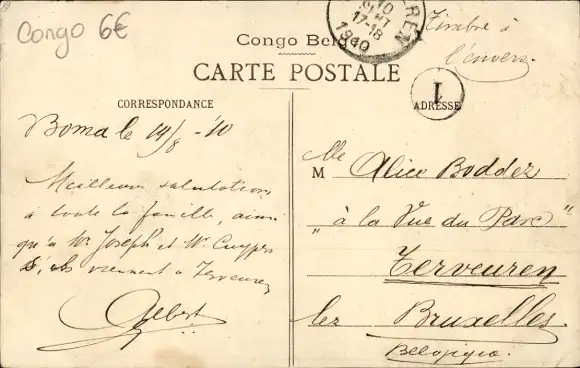 Congo 6€
Timbre à
l'envers.
10
SEPT
17-18
1910
Congo Bel
CARTE POSTALE
1
CORRESPONDANCE
ADRESSE
Boma le 14/8 -10
Meilleures salutations
à toute la famille, ainsi
qu'à Mr Joseph et Mr Cuypers
s'ils viennent à Tervueren
Albert
M Mlle Alice Boddez
"à la Vue du Parc"
Terveuren
lez Bruxelles
Belgique.